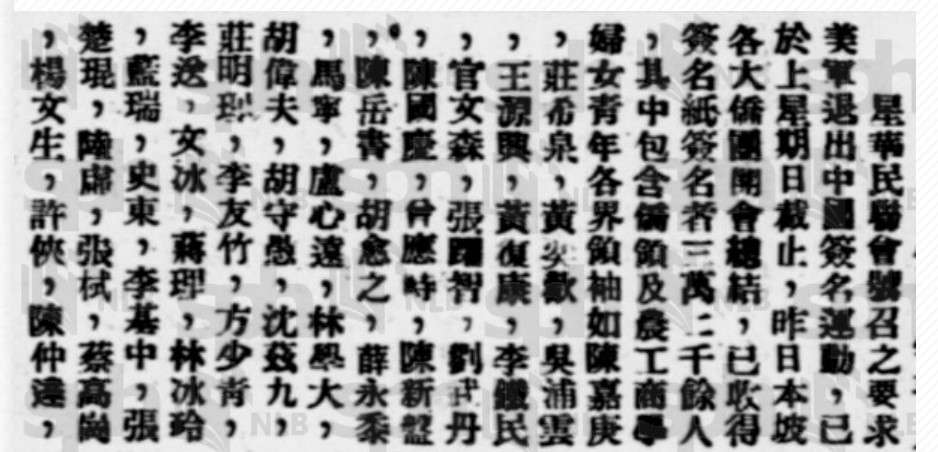 星華民聯會號召之要求
美軍退出中國簽名運動，已
於上星期日截止，昨日本坡
各大僑團開會總結，已收得
簽名紙簽名者三萬二千餘人
，其中包含僑領及農工商學
婦女青年各界領袖如陳嘉庚
，莊希泉，黃奕歡，吳浦雲
，王源興，黃復康，李鐵民
，官文森，張智，劉丹
，陳國慶，曾應時，陳新盤
，陳岳書，胡愈之，薛永黍
，馬寧，盧心遠，林學大，
胡偉夫，胡守愚，沈茲九，
莊明，李友竹，方少青，
李，女冰，蔣理，林冰玲
，藍瑞，史東，李基中，張
楚琨，陸，張栻，蔡高崗
，楊文生，許俠，陳仲達，